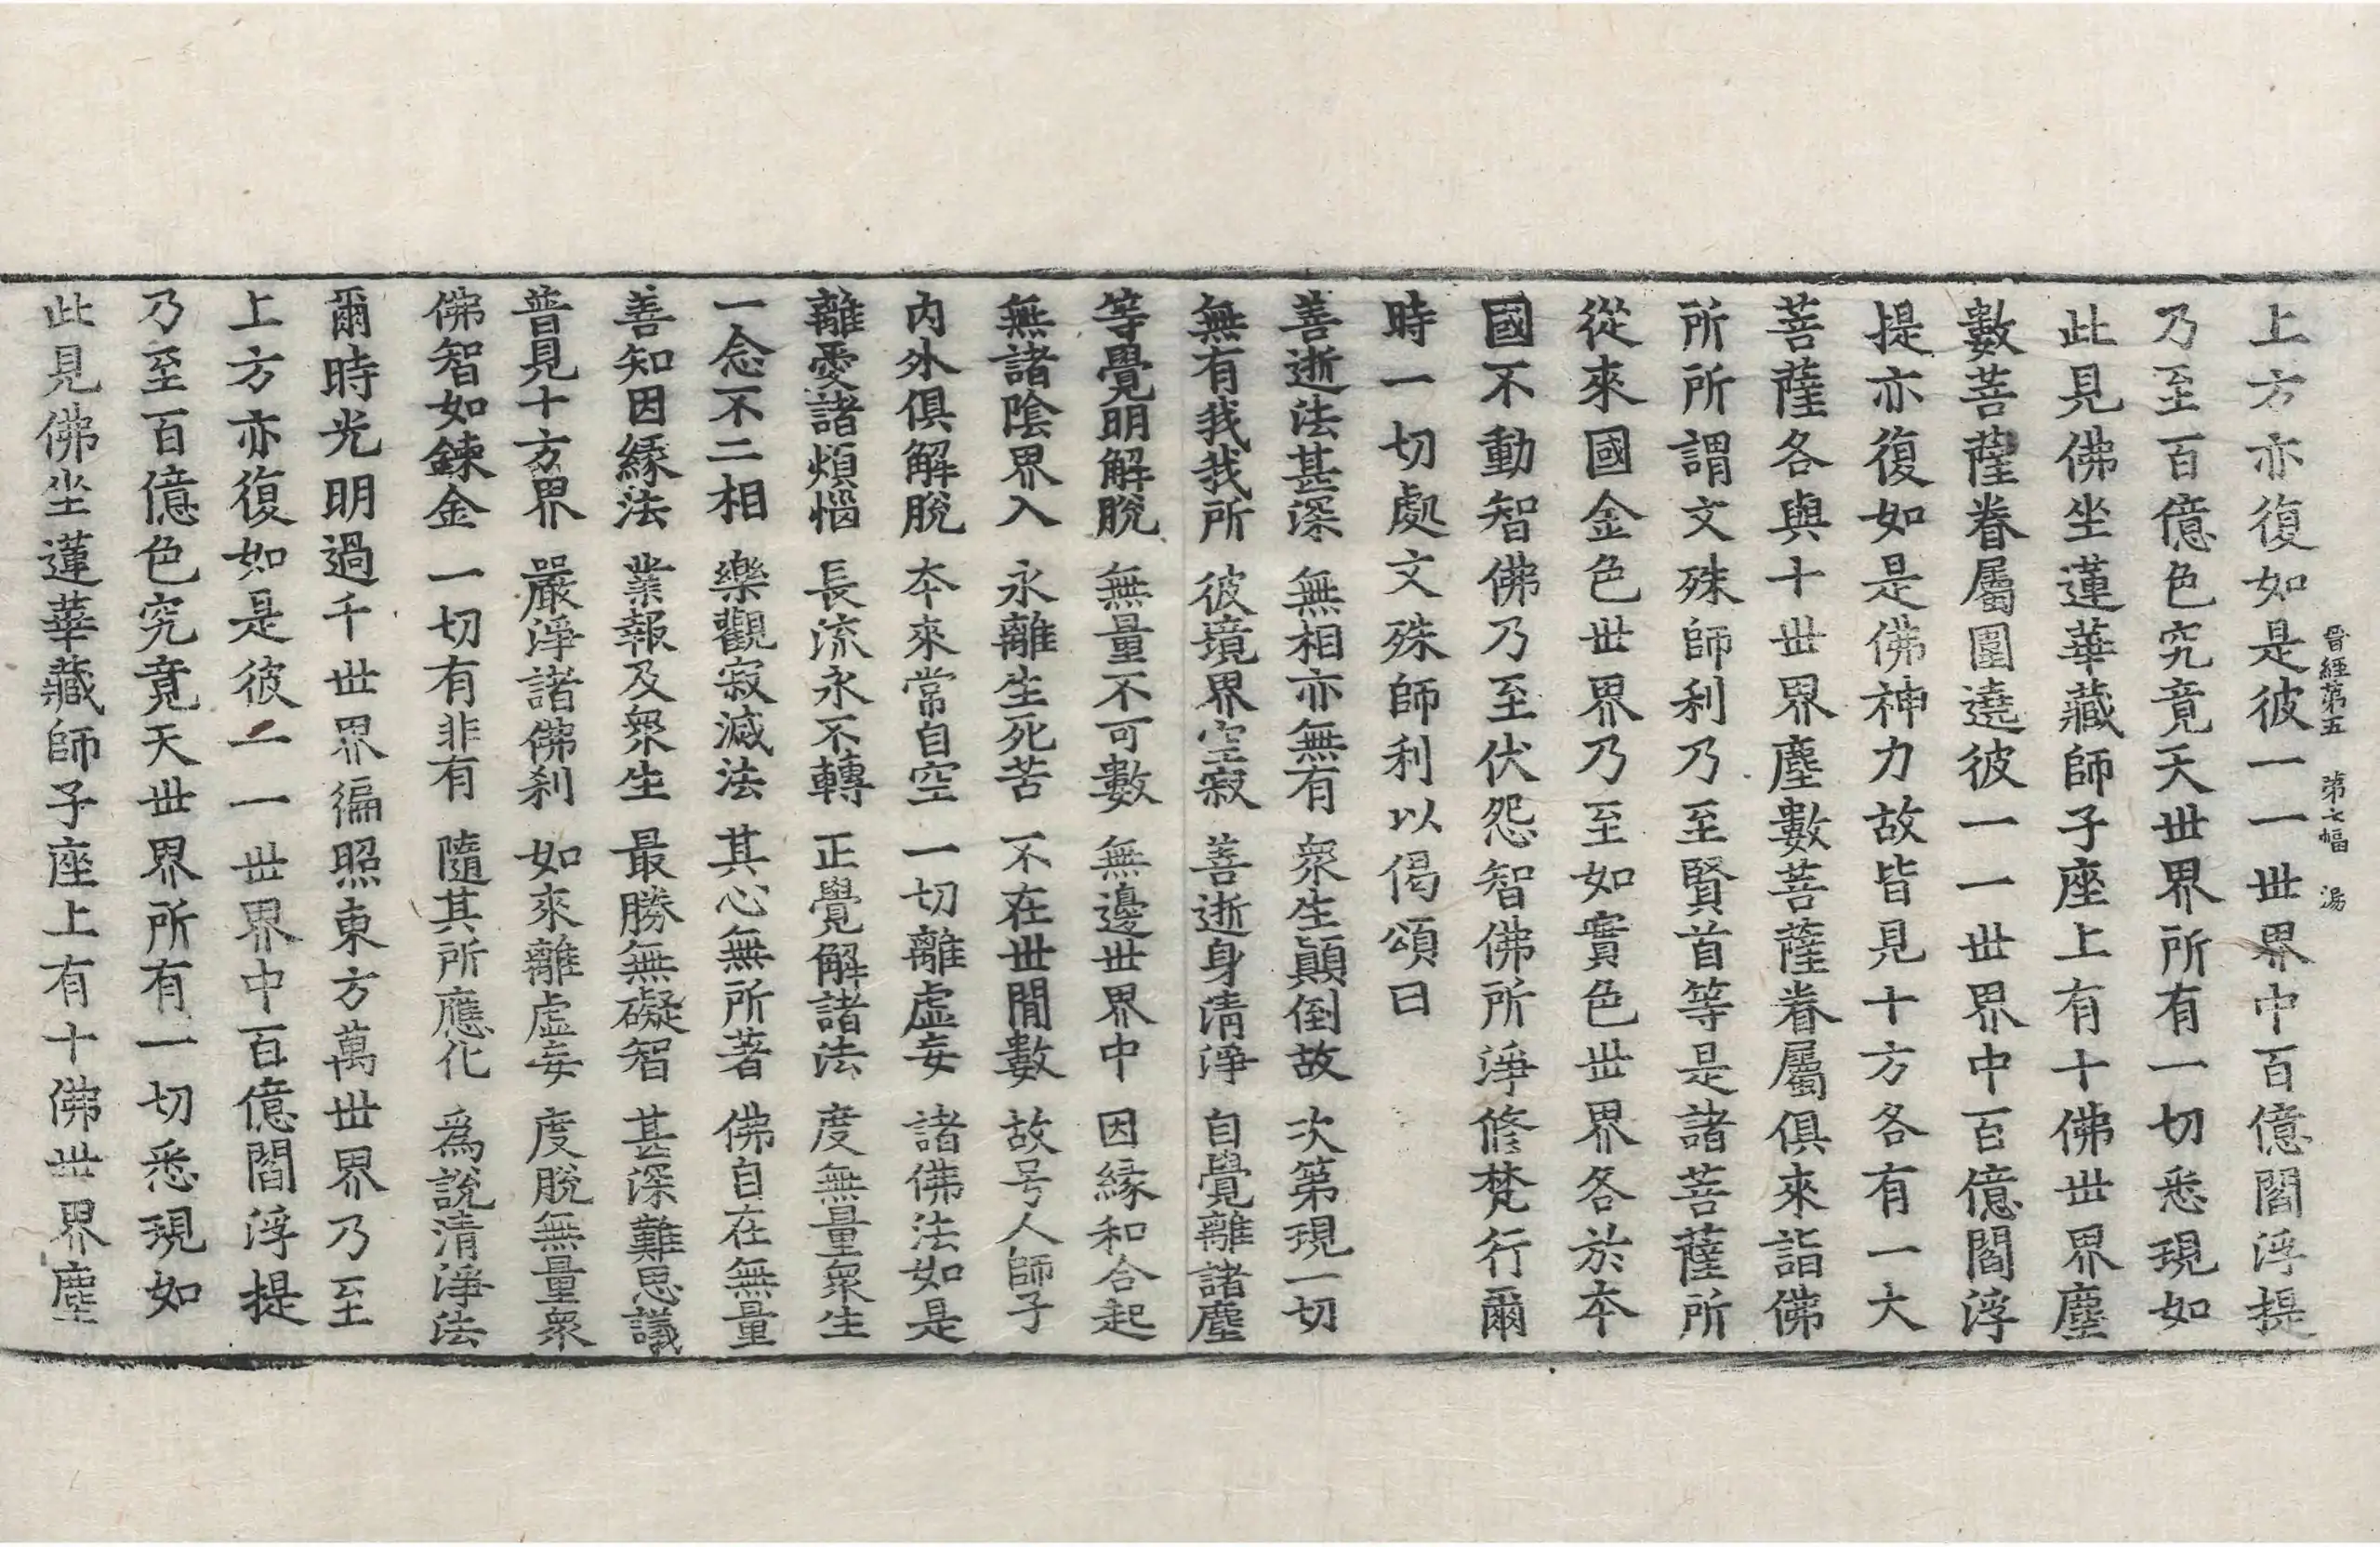 晉經第五　第七幅　湯
上方亦復如是彼一一世界中百億閻浮提
乃至百億色究竟天世界所有一切悉現如
此見佛坐蓮華藏師子座上有十佛世界塵
數菩薩眷屬圍遶彼一一世界中百億閻浮
提亦復如是佛神力故皆見十方各有一大
菩薩各與十世界塵數菩薩眷屬俱來詣佛
所所謂文殊師利乃至賢首等是諸菩薩所
從來國金色世界乃至如實色世界各於本
國不動智佛乃至伏怨智佛所淨修梵行爾
時一切處文殊師利以偈頌曰
善逝法甚深　無相亦無有　衆生顚倒故　次第現一切
無有我我所　彼境界空寂　善逝身清淨　自覺離諸塵
等覺明解脫　無量不可數　無邊世界中　因緣和合起
無諸陰界入　永離生死苦　不在世閒數　故号人師子
内外俱解脫　本來常自空　一切離虛妄　諸佛法如是
離愛諸煩惱　長流永不轉　正覺解諸法　度無量衆生
一念不二相　樂觀寂滅法　其心無所著　佛自在無量
善知因緣法　業報及衆生　最勝無礙智　甚深難思議
普見十方界　嚴淨諸佛刹　如來離虛妄　度脫無量衆
佛智如鍊金　一切有非有　隨其所應化　爲說清淨法
爾時光明過千世界徧照東方萬世界乃至
上方亦復如是彼一一世界中百億閻浮提
乃至百億色究竟天世界所有一切悉現如
此見佛坐蓮華藏師子座上有十佛世界塵